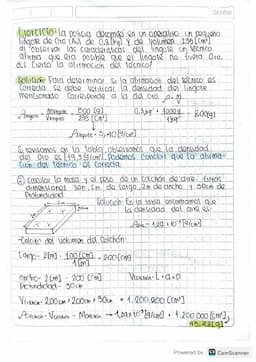 Scribe
Ejercicio: La policía decomisó en un operativo un pequeño
lingote de Oro (Au) de 0,8 [kg] y de volumen 235 [cm³]
al observar las características del lingote un técnico
afirma que era posible que el lingote no fuera oro.
¿Es cierta la afirmación del técnico?
Solución: Para determinar si la afirmación del técnico es
correcta se debe verificar la densidad del lingote
mencionado corresponde a la del oro
800 [g]
0,8 kg · 1000 g = 800 [g]
1 kg
= 3,40 [g/cm³]
Si revisamos en la tabla, observamos que la densidad
del oro es 19,3 [g/cm³]. Podemos concluir que la afirma-
ción del técnico es correcta.
② Calcular la masa y el peso de un colchón de aire cuyas
dimensiones son 2m de largo, 2m de ancho y 30cm de
profundidad
Solución: En la tabla encontramos que
la densidad del aire es:
Cálculo del volumen del colchón:
Largo = 2[m] · 100 [cm] = 200 [cm]
1 [m]
Ancho = 2 [m] = 200 [cm]
Profundidad = 30cm
= 200cm × 200cm × 30cm = 1.200.000 [cm³]
Powered by CS CamScanner